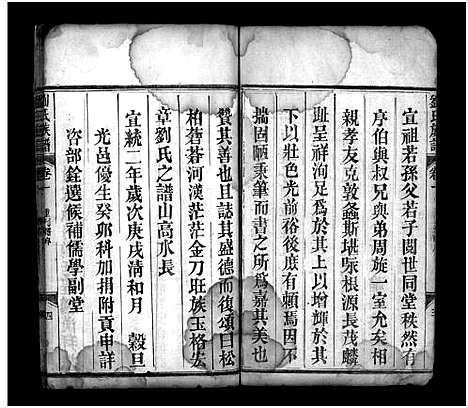 宣祖若孫父若子閱世同堂秩然有
序伯與叔兄與弟周旋一室允矣相
親孝友克敦螽斯堪咏根源長茂麟
趾呈祥洵足為於其上以增輝於其
下以壯色光前裕後庶有賴焉因不
揣固陋秉筆而書之所為嘉其美也
贊其善也且誌其盛德而復頌曰松
柏蒼蒼河漢茫茫金刀旺族玉格宏
章劉氏之譜山高水長
宣統二年歲次庚戌清和月 穀旦
光邑優生癸卯科加捐附貢申詳
咨部銓選候補儒學副堂
劉氏族譜
卷一
四